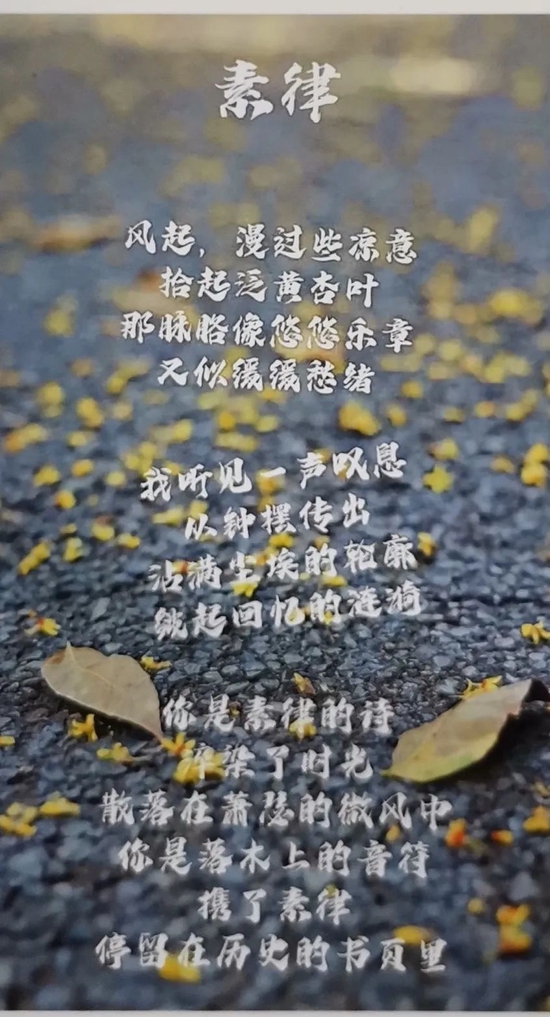 素律
风起，漫过些凉意
拾起泛黄杏叶
那脉胳像悠悠乐章
又似缓缓愁绪
我听见一声叹息
从钟摆传出
沾满尘埃的轮廓
皱起回忆的涟漪
你是素律的诗
渲染了时光
散落在萧瑟的微风中
你是落木上的音符
携了素律
停留在历史的书页里